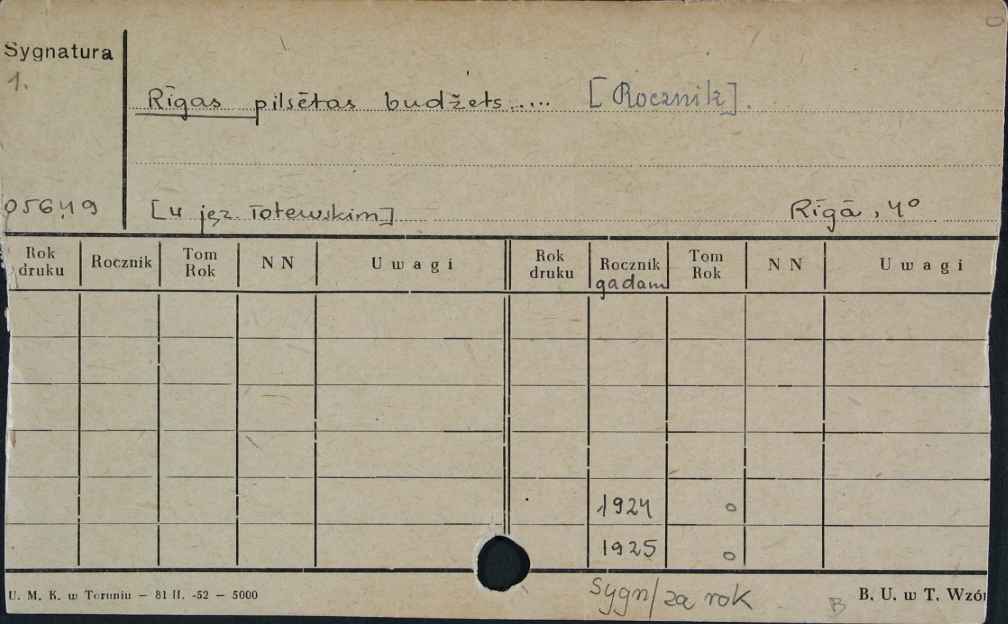 Sygnatura
1.
Rīgas pilsētas budžets..... [Rocznik].
05649 [w jęz. łotewskim] Rīgā, 4º
Rok druku Rocznik Tom Rok NN Uwagi Rok druku Rocznik gadam Tom Rok NN Uwagi
1924 o
1925 o
Sygn/za rok
U. M. K. w Toruniu — 81 II. -52 — 5000 B B. U. w T. Wzór